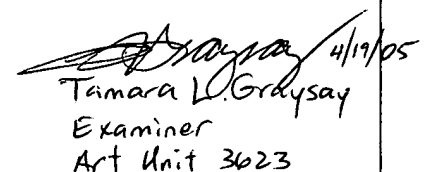 Graysay 4/19/05
Tamara L. Graysay
Examiner
Art Unit 3623